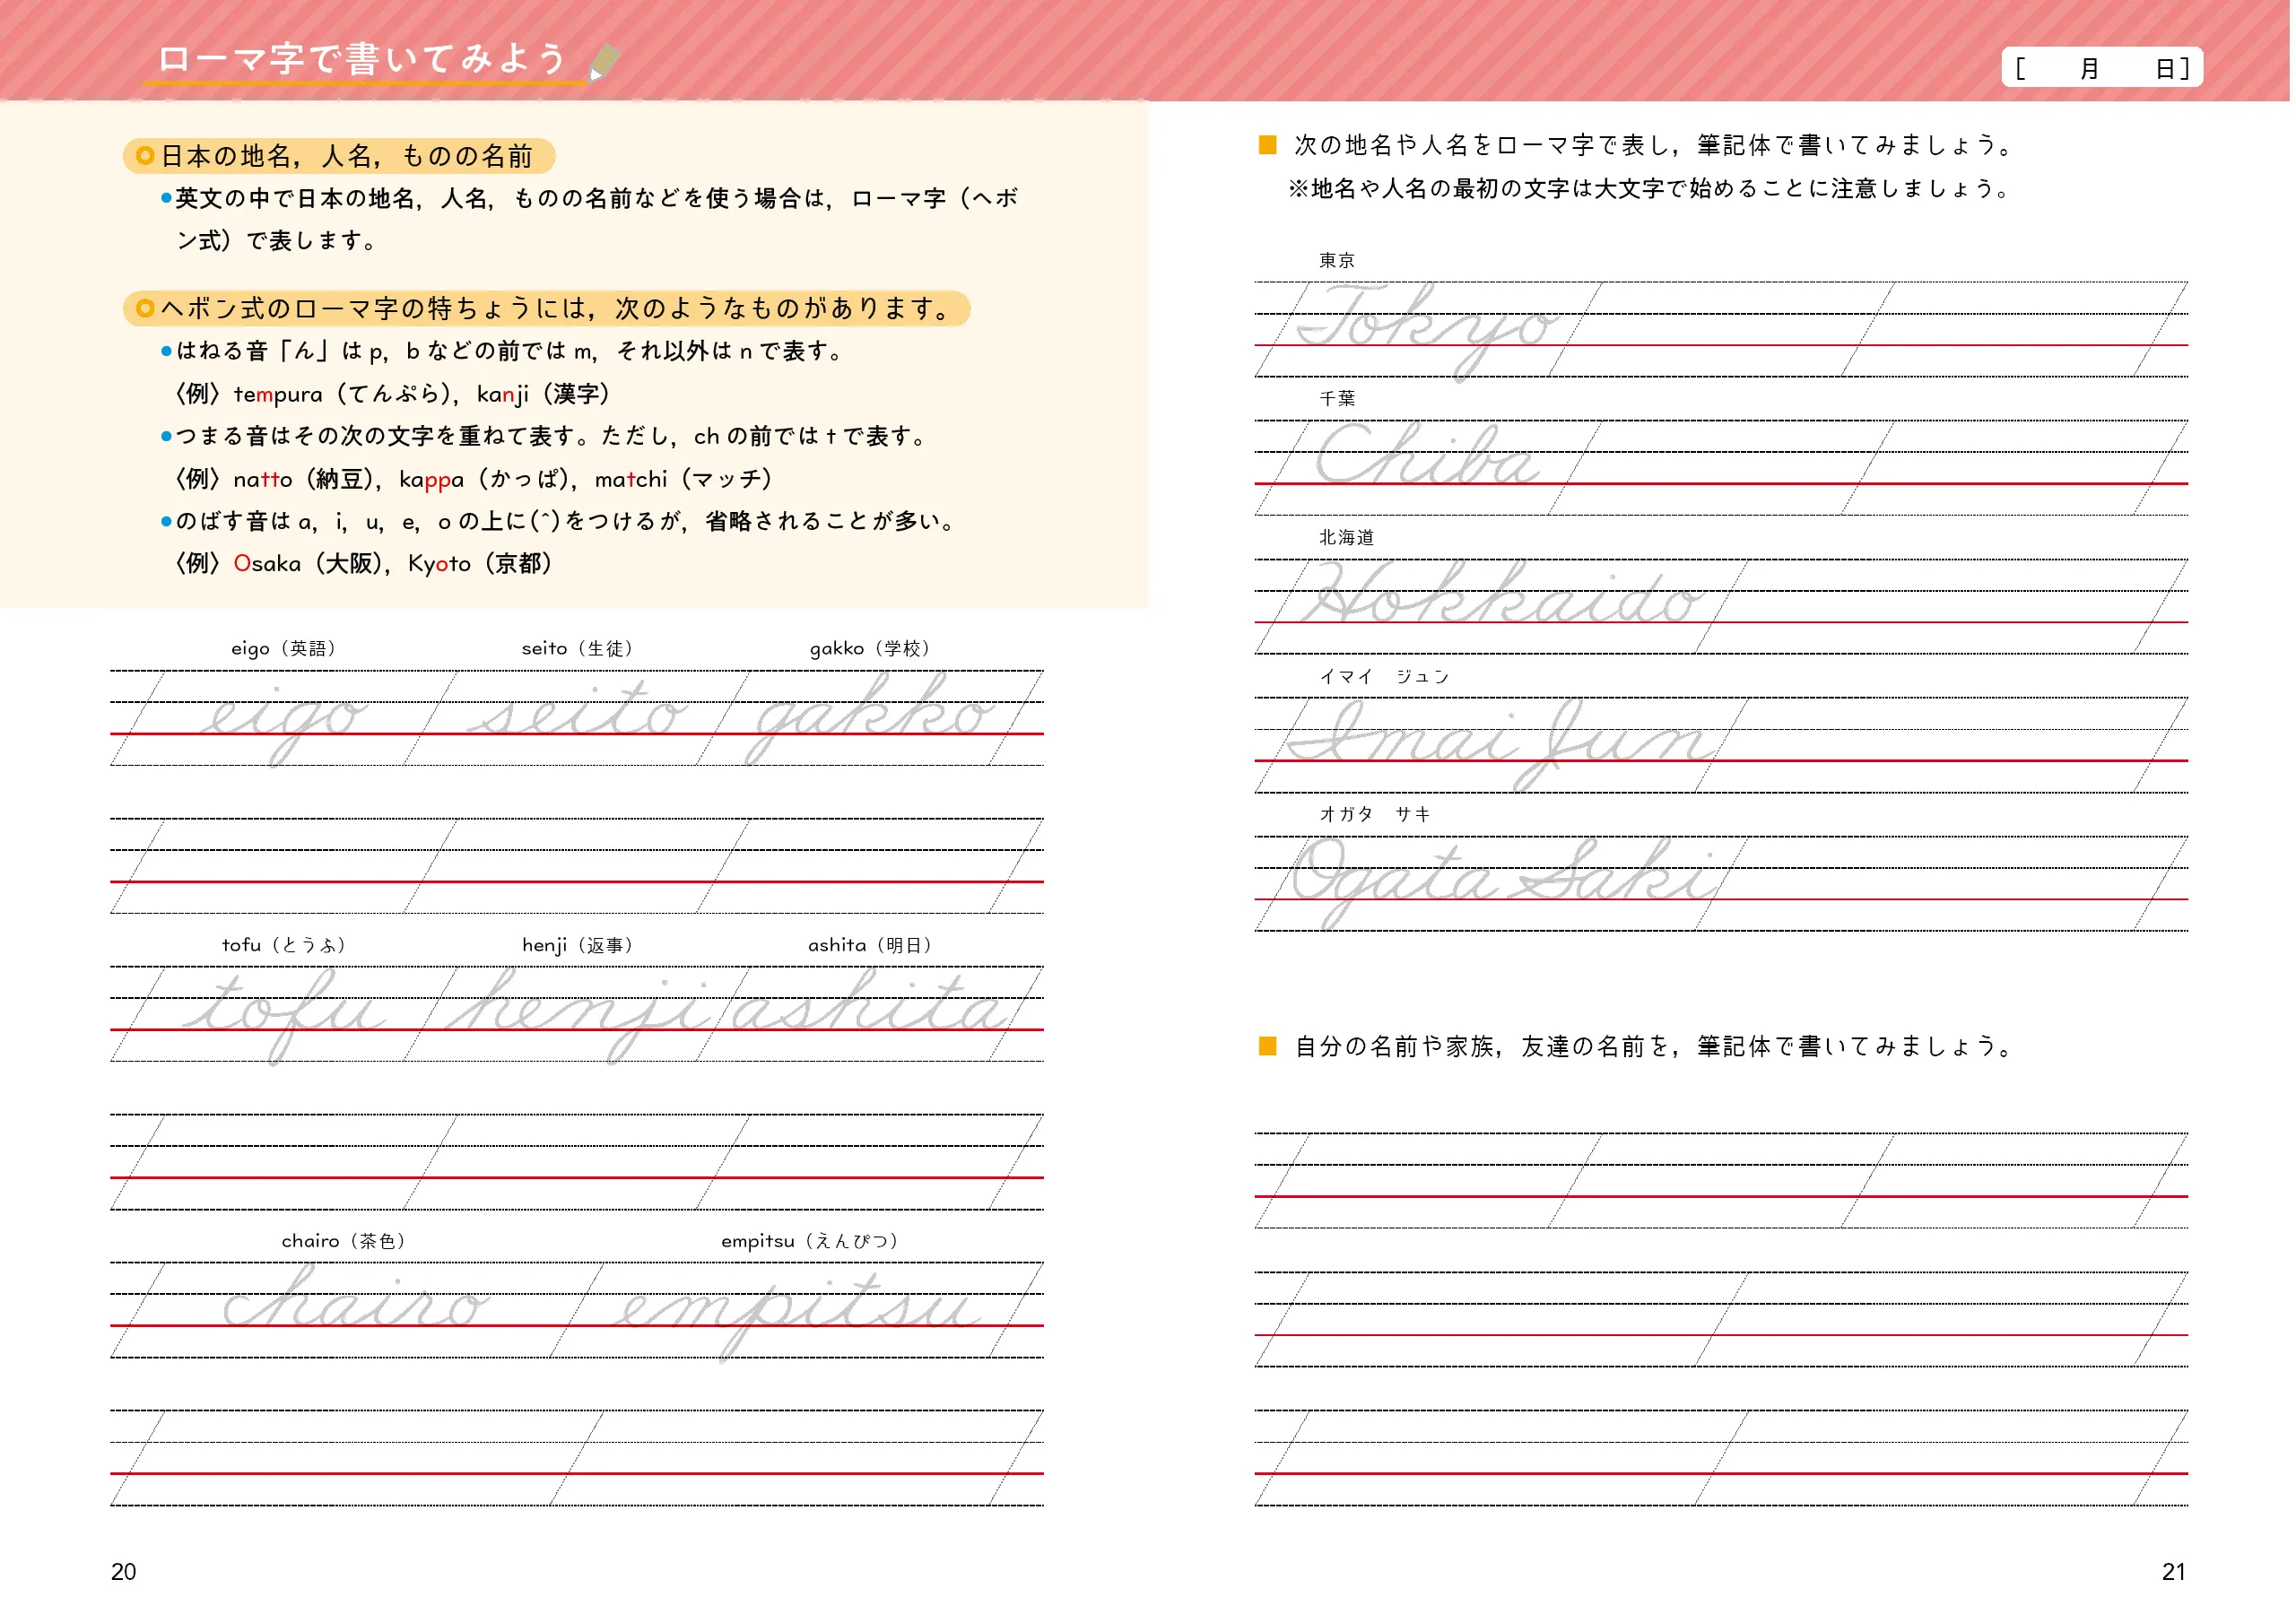 ローマ字で書いてみよう
[　月　日]
日本の地名，人名，ものの名前
●英文の中で日本の地名，人名，ものの名前などを使う場合は，ローマ字（ヘボ
ン式）で表します。
ヘボン式のローマ字の特ちょうには，次のようなものがあります。
●はねる音「ん」は p，b などの前では m，それ以外は n で表す。
〈例〉tempura（てんぷら），kanji（漢字）
●つまる音はその次の文字を重ねて表す。ただし，ch の前では t で表す。
〈例〉natto（納豆），kappa（かっぱ），matchi（マッチ）
●のばす音は a，i，u，e，o の上に(^)をつけるが，省略されることが多い。
〈例〉Osaka（大阪），Kyoto（京都）
eigo（英語）　seito（生徒）　gakko（学校）
eigo　seito　gakko
tofu（とうふ）　henji（返事）　ashita（明日）
tofu　henji　ashita
chairo（茶色）　empitsu（えんぴつ）
chairo　empitsu
20
■ 次の地名や人名をローマ字で表し，筆記体で書いてみましょう。
※地名や人名の最初の文字は大文字で始めることに注意しましょう。
東京
Tokyo
千葉
Chiba
北海道
Hokkaido
イマイ　ジュン
Imai Jun
オガタ　サキ
Ogata Saki
■ 自分の名前や家族，友達の名前を，筆記体で書いてみましょう。
21